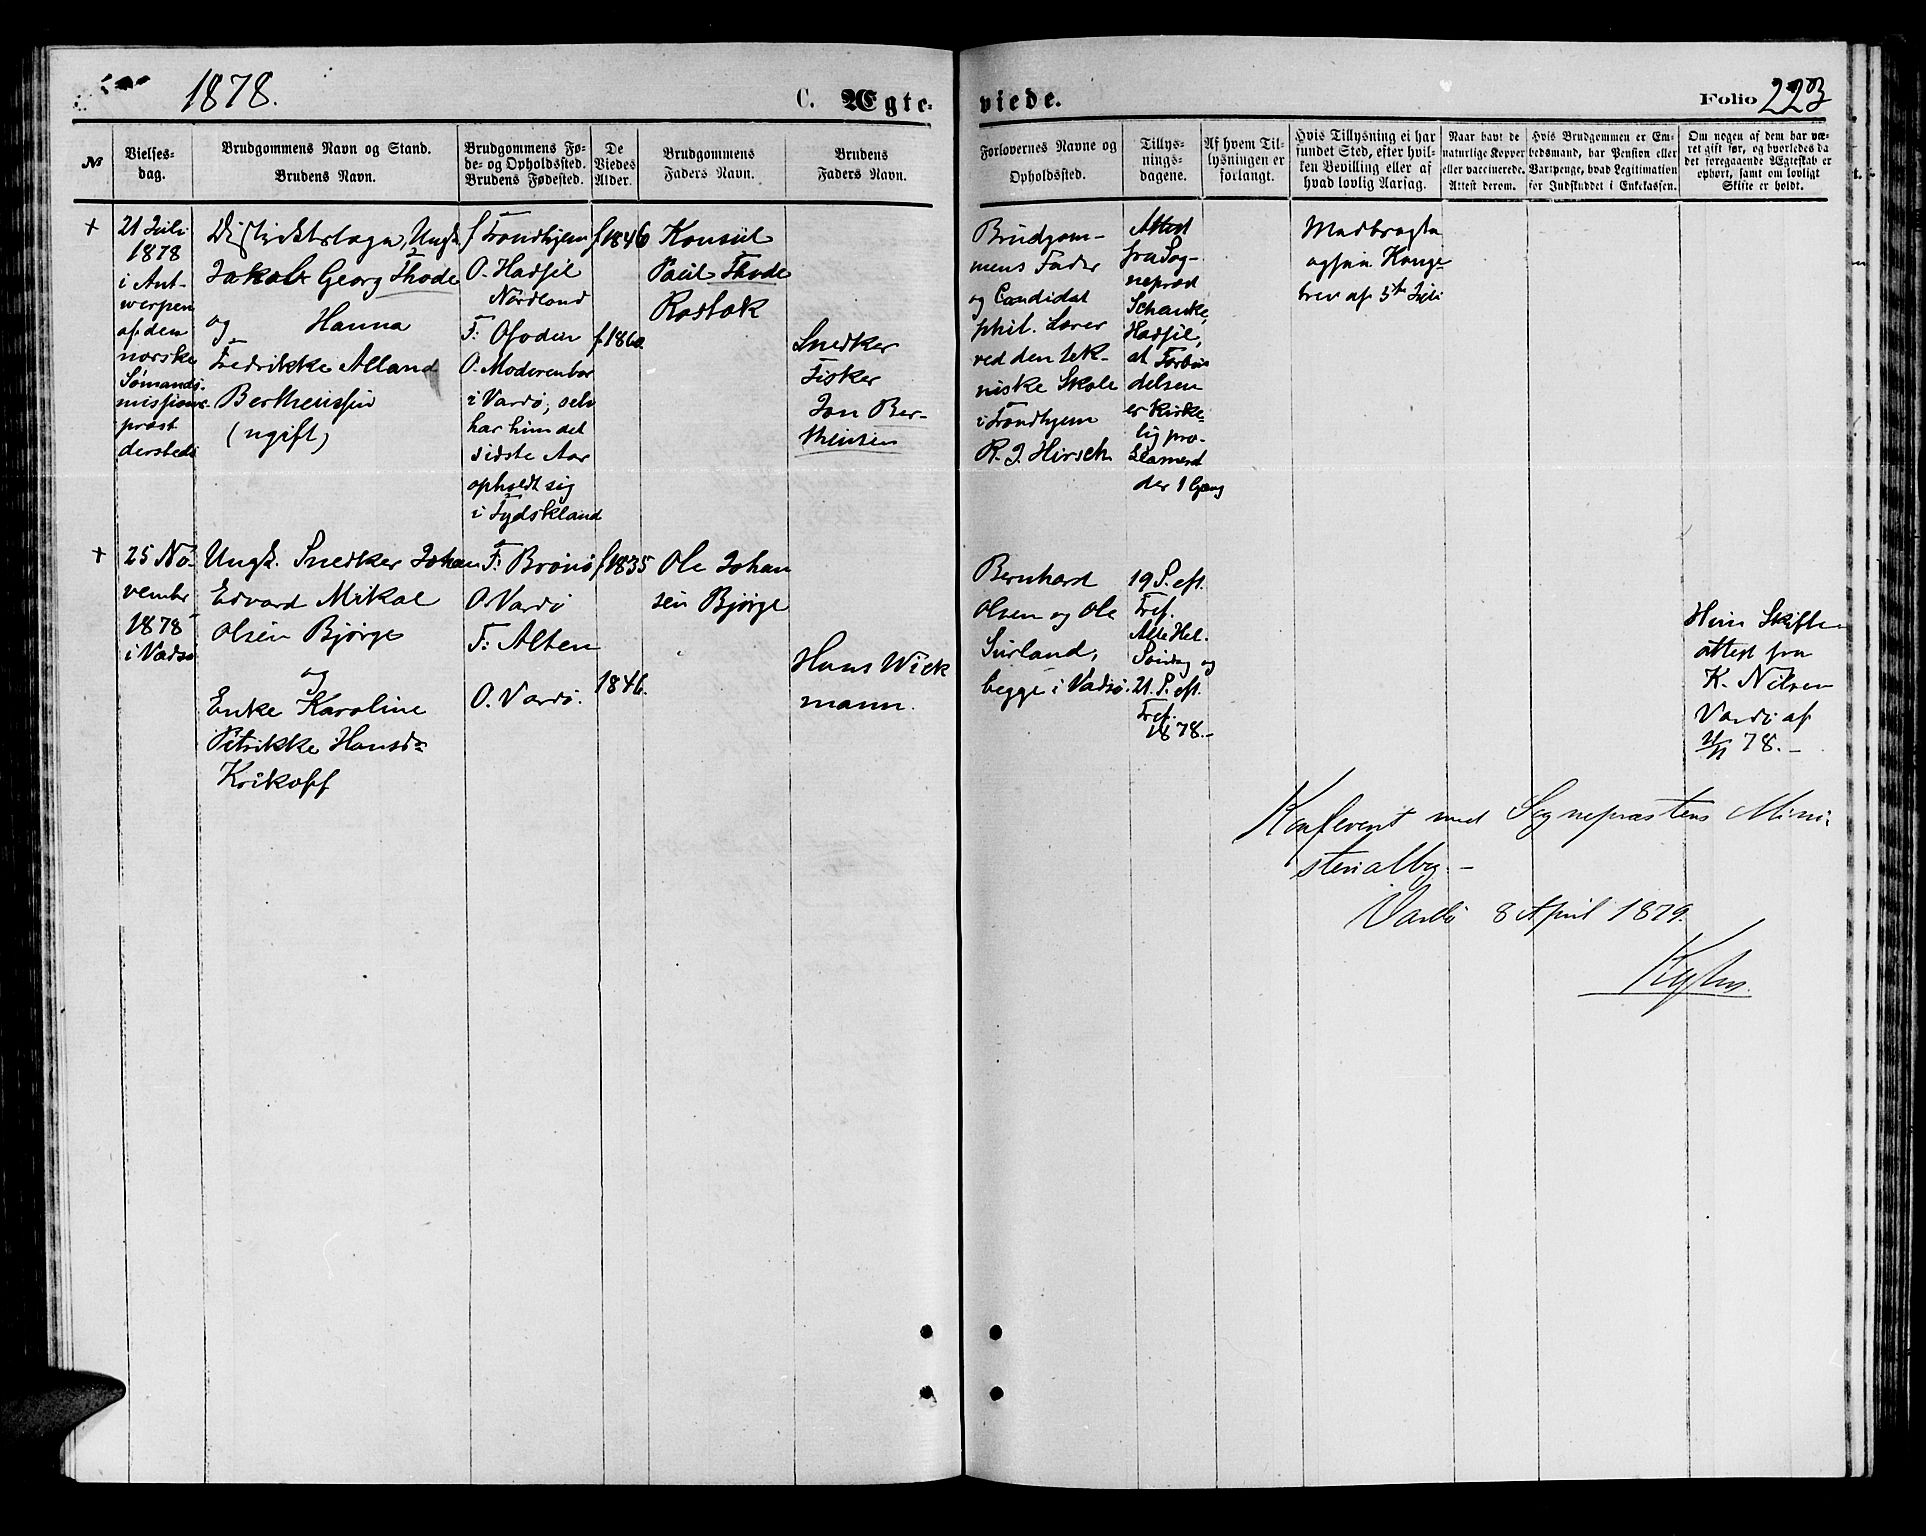 1878.
C. Ægte-
viede.
Folio 223
№
Vielses-
dag.
Brudgommens Navn og Stand.
Brudens Navn.
Brudgommens Fø-
de- og Opholdssted.
Brudens Fødested.
De
Viedes
Alder.
Brudgommens
Faders Navn.
Brudens
Faders Navn.
Forlovernes Navne og
Opholdssted.
Tillys-
nings-
dagene.
Af hvem Til-
lysningen er
forlangt.
Hvis Tillysning ei har
fundet Sted, efter hvil-
ken Bevilling eller af
hvad lovlig Aarsag.
Naar havt de
naturlige Kopper
eller vaccinerede.
Attest derom.
Hvis Brudgommen er Em-
bedsmand, har Pension eller
Vartpenge, hvad Legitimation
for Indskuddet i Enkekassen.
Om nogen af dem har væ-
ret gift før, og hvorledes da
det foregaaende Ægteskab er
ophørt, samt om lovligt
Skifte er holdt.
+
21 Juli
1878
i Ant-
werpen
af den
norske
Sømands-
missions-
præst
dersteds
Distriktslæge, Ungk.
Jakob Georg Thode
og Hanna
Fredrikke Alland
Berthensen
(ugift)
f Trondhjem
O. Hadsel
Nordland
F: Ofoden
O. Moderen bor
i Vardø, selv
har hun det
sidste Aar
opholdt sig
i Tydskland
f 1846
f 1860.
Konsul
Paul Thode
Rostok
Snedker
Fisker
Jon Ber-
thensen
Brudgom-
mens Fader
og Candidat
phil. Lærer
ved den tek-
niske Skole
i Trondhjem
R. J. Hirsch
Attest
fra Sog-
nepræst
Schanke,
Hadsel,
at Forbin
delsen
er kirke-
lig pro-
klameret
der 1 Gang
Medbragte
ogsaa Konge-
brev af 5te Juli
+
25 No-
vembr
1878
i Vadsø
Ungk. Snedker Johan
Edvard Mikal
Olsen Bjørge
og
Enke Karoline
Petrikke Hansd=
Krikoff
F: Brønø
O. Vardø
F: Alten
O. Vardø.
f 1835
1846.
Ole Johan
sen Bjørge
Hans Wick
mann.
Bernhard
Olsen og Ole
Surland,
begge i Vadsø.
19 S. eft.
Tref.
Alle Hel.
Søndag og
21. S. eft.
Tref.
1878.-
Hun Skifte
attest fra
K. Nilsen
Vardø af
21/11 78.-
Konfereret med Sognepræstens Mini-
sterialbog.-
Vardø 8 April 1879.